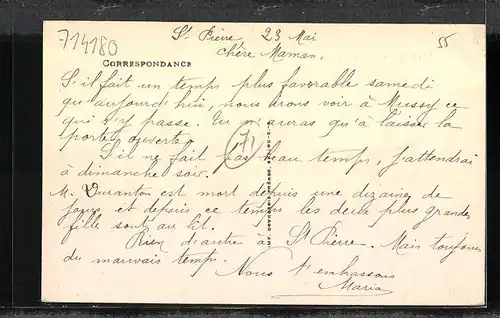 714180
St Pierre 23 Mai
55
Chère Maman,
CORRESPONDANCE
S'il fait un temps plus favorable samedi
qu'aujourd'hui, nous irons voir à Mussy ce
qui s'y passe. Tu n'auras qu'à laisser la
porte ouverte!
71
S'il ne fait pas beau temps, j'attendrai
à dimanche soir.
M. Duranton est mort depuis une dizaine de
jours et depuis ce temps les deux plus grandes
fille sont au lit.
Rien d'autre à St Pierre. Mais toujours
du mauvais temps.
Nous t'embrassons
Maria